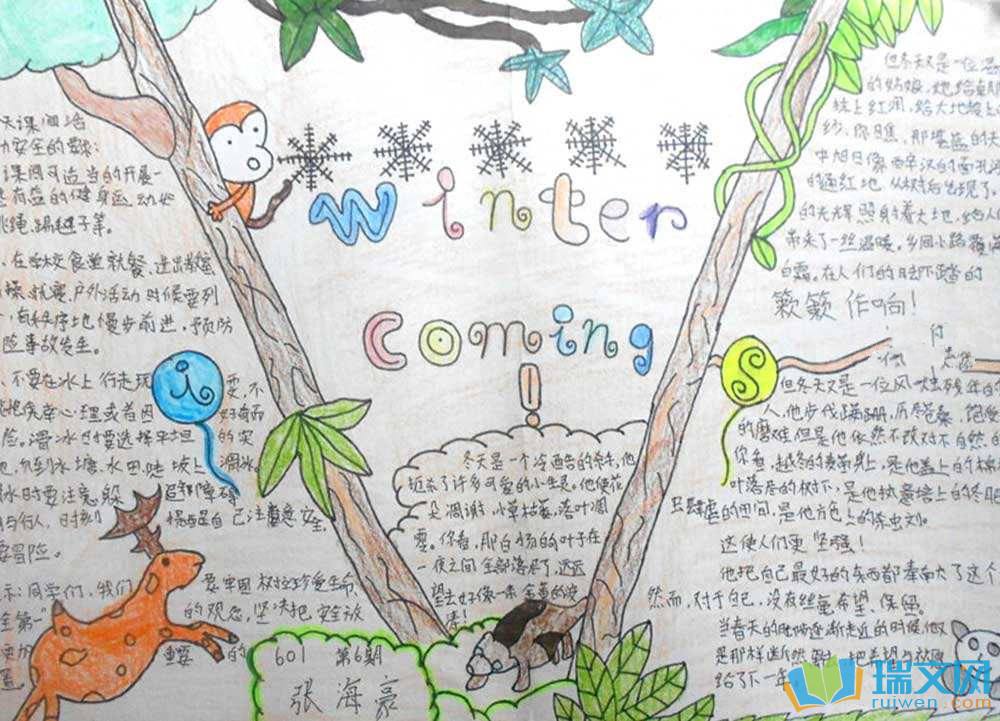 winter
coming
!
i
S
天课间活
安全的
课间可适当的开展一
有益的健身运动如
跳绳、踢毽子等。
在学校食堂就餐、进出教室
操、就寝、户外活动时候要列
有秩序地慢步前进，预防
险事故发生。
不要在冰上行走玩 耍，不
侥幸心理或者因 好奇而
险。滑冰时要选择平坦 的实
勿到冰塘、水田、陡坡上 溜冰。
冰时要注意躲 避障碍
与行人，时刻 提醒自己注意安全，
要冒险。
示：同学们，我们 要牢固树立珍爱生命，
全第一" 的观念，坚决把安全放
更加 重要的
置
冬天是一个冷酷的杀手，他
扼杀了许多可爱的小生灵。他使花
朵凋谢，小草枯萎，落叶凋
零。你看，那白杨的叶子在
一夜之间全部落尽了，远远
望去好像一条金黄的
601 第6期
张海豪
但冬天又是一位温
的姑娘，她给
挂上红润，给大地披上
纱。你瞧，那
中旭日像
的通红地，从树后出现了
的光辉照射着大地，给人们
带来了一丝温暖。乡间小路覆
白霜，在人们的
簌簌作响！
但冬天又是一位风烛残年的
人，他步伐蹒跚，历尽苍桑，饱
的磨难，但是他依然不改对不自然的
你看，越冬的麦苗身上，是他盖上的棉
叶落尽的树下，是他执意培上的冬肥
的田间，是他
这使人们更坚强！
他把自己最好的东西都奉献大了这个
然而，对于自己，没有丝毫希望、保留。
当春天的脚步逐渐走近的时候，他又
是那样
给了下一年
瑞文网
ruiwen.com